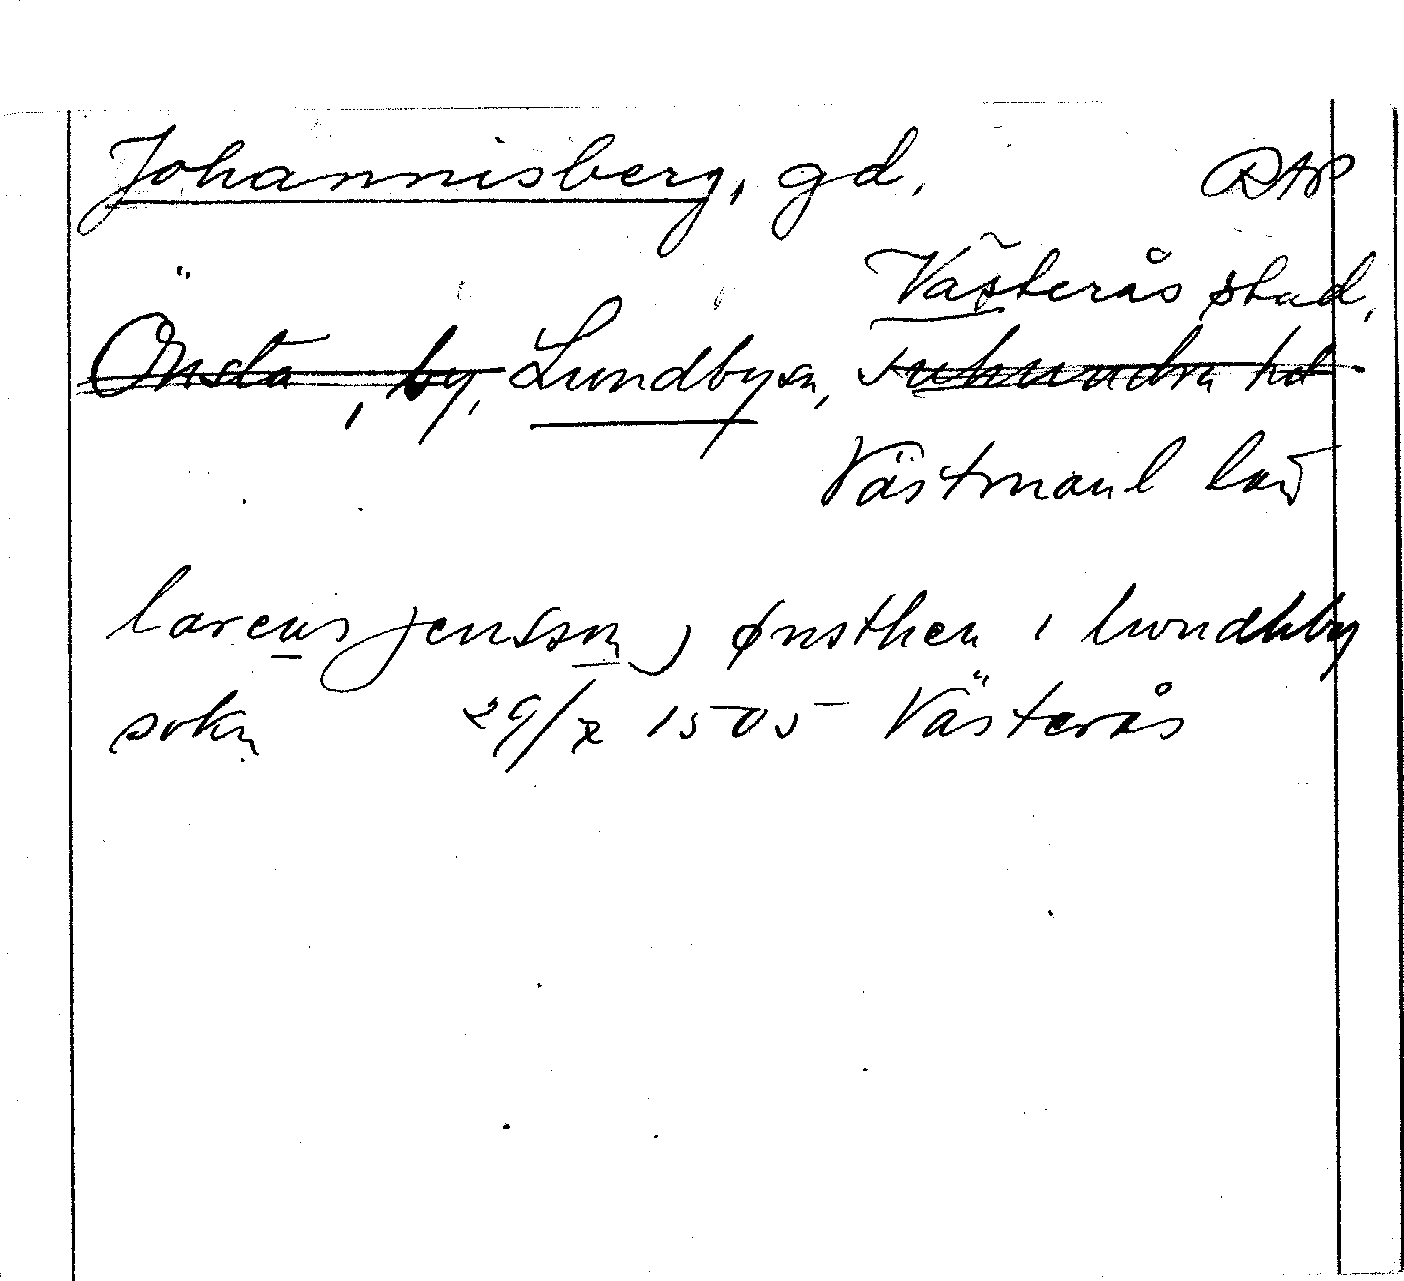 Johannisberg, gd. RAP
Västerås stad,
Önsta, by, Lundby sn, Tuhundra hd
Västmanl län
larens jensson j ønsthen i lwndhby
sokn 29/7 1505 Västerås